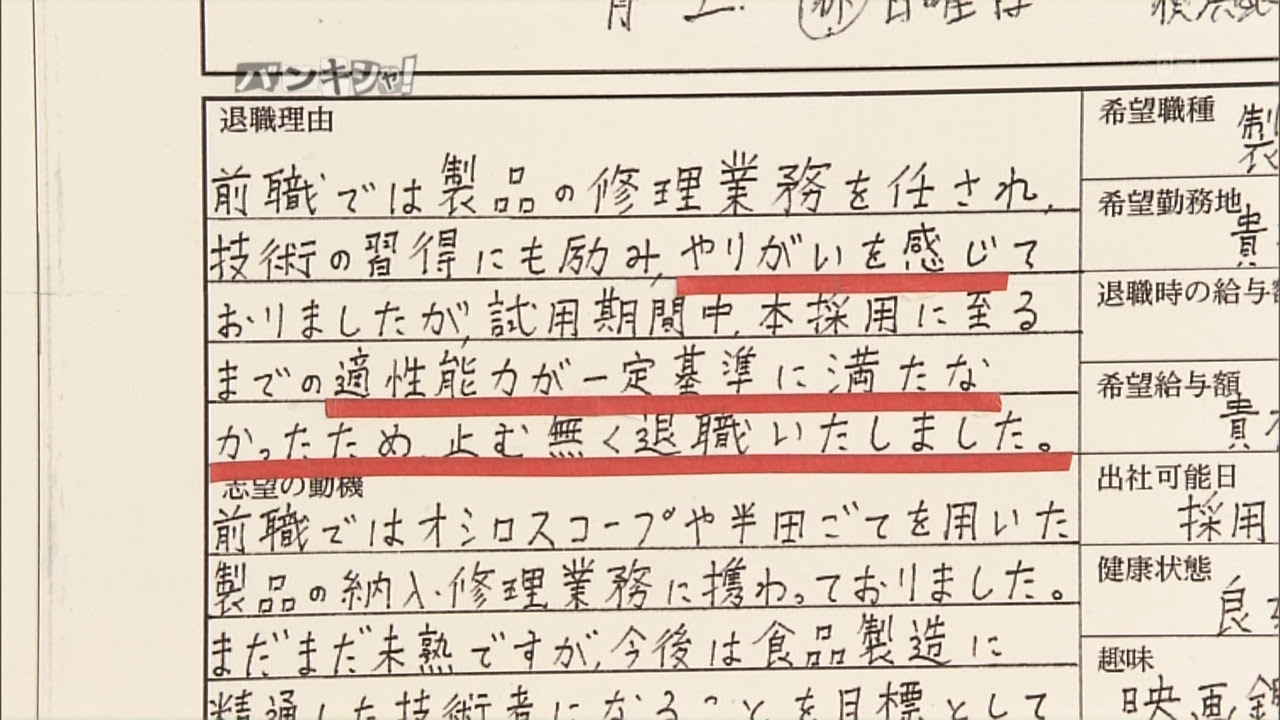 バンキシャ!
退職理由
前職では製品の修理業務を任され、
技術の習得にも励み、やりがいを感じて
おりましたが、試用期間中、本採用に至る
までの適性能力が一定基準に満たな
かったため、止む無く退職いたしました。
志望の動機
前職ではオシロスコープや半田ごてを用いた
製品の納入・修理業務に携わっておりました。
まだまだ未熟ですが、今後は食品製造に
精通した技術者になることを目標として
希望職種
製
希望勤務地
貴
退職時の給与額
希望給与額
貴
出社可能日
採用
健康状態
良
趣味
映画